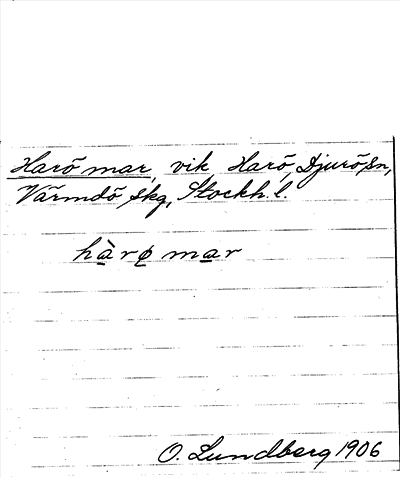 Harö mar, vik, Harö, Djurö sn,
Värmdö skg, Stockh. l.
hàrø mar
O. Lundberg 1906